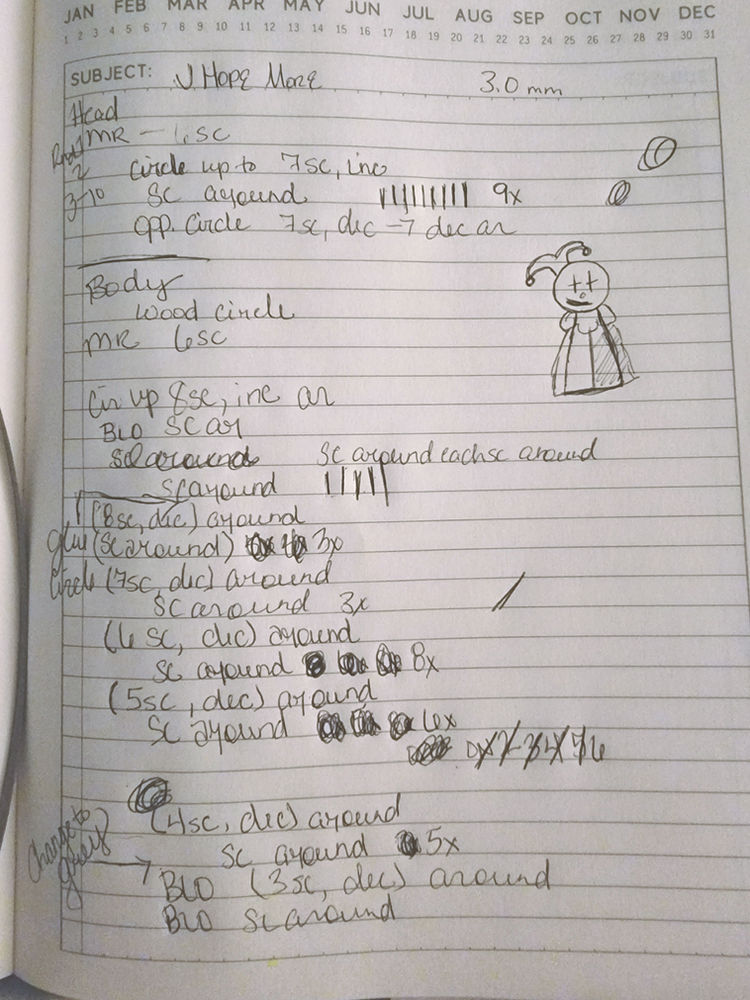 JAN FEB MAR APR MAY JUN JUL AUG SEP OCT NOV DEC
1 2 3 4 5 6 7 8 9 10 11 12 13 14 15 16 17 18 19 20 21 22 23 24 25 26 27 28 29 30 31
SUBJECT: J Hope More 3.0 mm
Head
Rnd 1 MR - 6 sc
2 circle up to 7sc, inc
3-10 SC around 9x
opp. circle 7sc, dec - 7 dec ar
Body
wood circle
MR 6sc
Cir up 8sc, inc ar
BLO SC ar
SC around SC around each sc around
SC around
(8sc, dec) around
glue (SC around) 3x
circle (7sc, dec) around
SC around 3x
(6 sc, dec) around
SC around 8x
(5sc, dec) around
SC around 6x
(4sc, dec) around
SC around 5x
change to
BLO (3sc, dec) around
BLO SC around